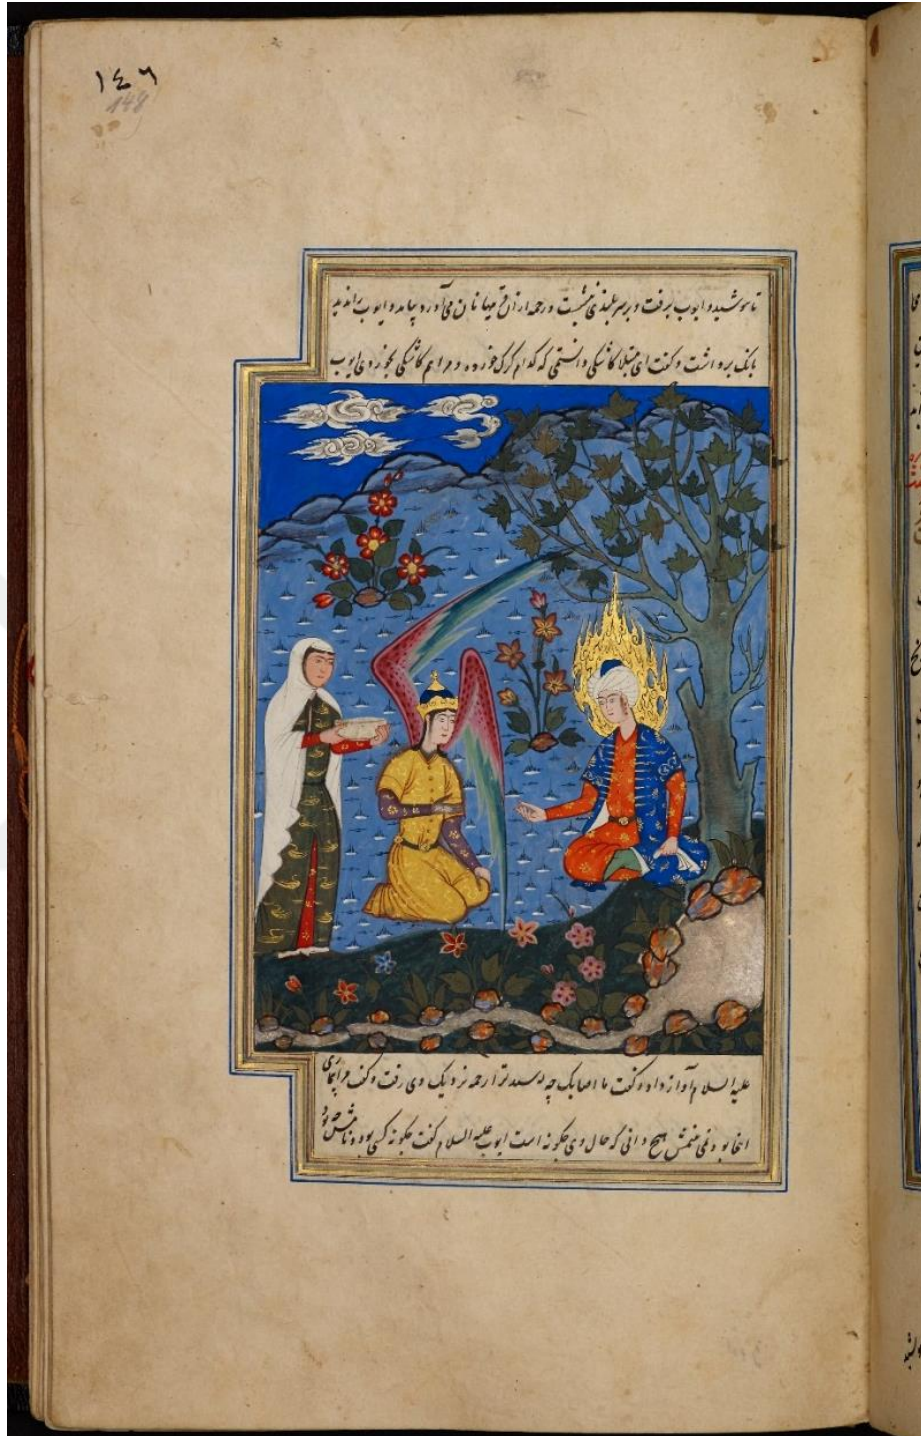 ١٤٦
148
تا بپوشید و ایوب برفت و بر سر بلندی بنشست و رحمه از آن قریها نان می‌آورد بیامد و ایوب را ندید
بانک برداشت و گفت ای مبتلا کاشکی دانستمی که کدام گرگ خورده و مرا هم کاشکی بخوردی ایوب
علیه السلام آواز داد و گفت یا ترا رحمه نزدیک وی رفت و گفت مرا بیماری
اینجا بود نمی بینمش هیچ دانی که حال وی چگونه است ایوب علیه السلام گفت چگونه کسی بود و نامش چه بود